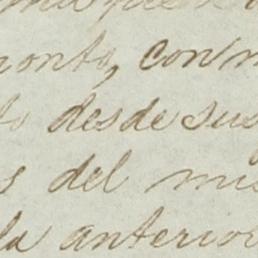 ronto, con
to desde sus
s del mis
la anterior